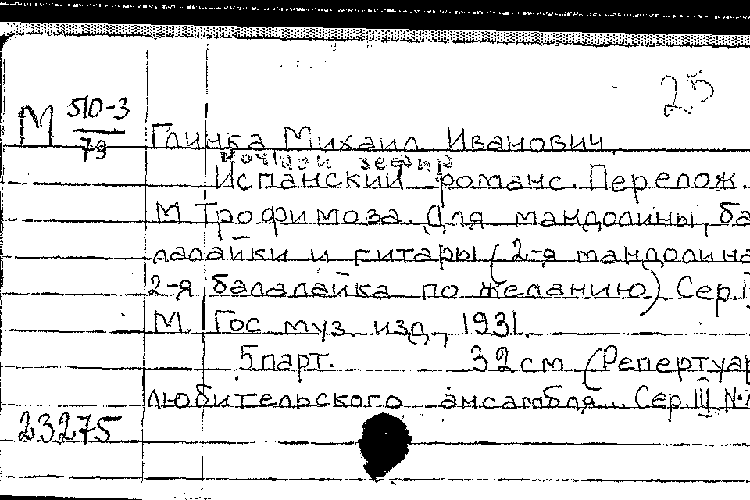 25
М 510-3
79
Глинка Михаил Иванович.
Ночной зефир
Испанский романс. Перелож.
М Трофимова. Для мандолины, ба
лалайки и гитары (2-я мандолина
2-я балалайка по желанию) Сер.
М. Гос муз. изд., 1931.
5 парт. 32 см (Репертуар
любительского ансамбля. Сер III №
23275